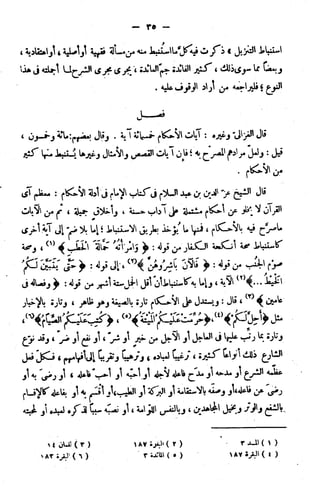 — ٣٥ —
استنباط التنزيل » ذكرت فيه كل ما استنبط منه من مسألة فقهية أو أصلية ، أو اعتقادية ،
وبعضاً مما سوى ذلك ، كثير الفائدة جم العائدة ، يجرى مجرى الشرح لما أجملته فى هذا
النوع ؛ فليراجعه من أراد الوقوف عليه .
فصل
قال الغزالى وغيره : آيات الأحكام خمسمائة آية . وقال بعضهم : مائة وخمسون ،
قيل : ولعل مرادهم المصرح به ؛ فإن آيات القصص والأمثال وغيرها يُستنبط منها كثير
من الأحكام .
قال الشيخ عز الدين بن عبد السلام فى كتاب الإمام فى أدلة الأحكام : معظم آى
القرآن لا يخلو عن أحكام مشتملة على آداب حسنة ، وأخلاق جميلة ، ثم من الآيات
ماصرح فيه بالأحكام ، فمنها ما يؤخذ بطريق الاستنباط ؛ إما بلا ضم إلى آية أخرى
كاستنباط صحة أنكحة الكفار من قوله : ﴿ وَامْرَأَتُهُ حَمَّالَةَ الْحَطَبِ ﴾ (١) ، وصحة
صوم الجنب من قوله : ﴿ فَالْآنَ بَاشِرُوهُنَّ ﴾ (٢) ، إلى قوله : ﴿ حَتَّى يَتَبَيَّنَ لَكُمُ
الْخَيْطُ ... ﴾ (٢) الآية ، وإما به كاستنباط أن أقل الحمل ستة أشهر من قوله : ﴿ وفصاله فى
عامين ﴾ (٣) ، قال : ويستدل على الأحكام تارة بالصيغة وهو ظاهر ، وتارة بالإخبار
مثل ﴿ أُحِلَّ لَكُمْ ﴾ (٤) ، ﴿ حُرِّمَتْ عَلَيْكُمُ الْمَيْتَةُ ﴾ (٥) ، ﴿ كُتِبَ عَلَيْكُمُ الصِّيَامُ ﴾ (٦) ،
وتارة بما رتب عليها فى العاجل أو الآجل من خير أو شر ، أو نفع أو ضر ، وقد نوع
الشارع ذلك أنواعاً كثيرة ، ترغيباً لعباده ، وترهيباً وتقريباً إلى أفهامهم ، فكل فعل
عظمه الشرع أو مدحه أو مدح فاعله لأجله أو أحبه أو أحب فاعله ، أو رضى به أو
رضى عن فاعله ، أو وصفه بالاستقامة أو البركة أو الطيب ، أو أقسم به أو بفاعله كالإقسام
بالشفع والوتر وبخيل المجاهدين ، وبالنفس اللوامة ، أو نصبه سبباً لذكره لعبده أو لمحبته
(١) المسد ٣ (٢) البقرة ١٨٧ (٣) لقمان ١٤
(٤) البقرة ١٨٧ (٥) المائدة ٣ (٦) البقرة ١٨٣